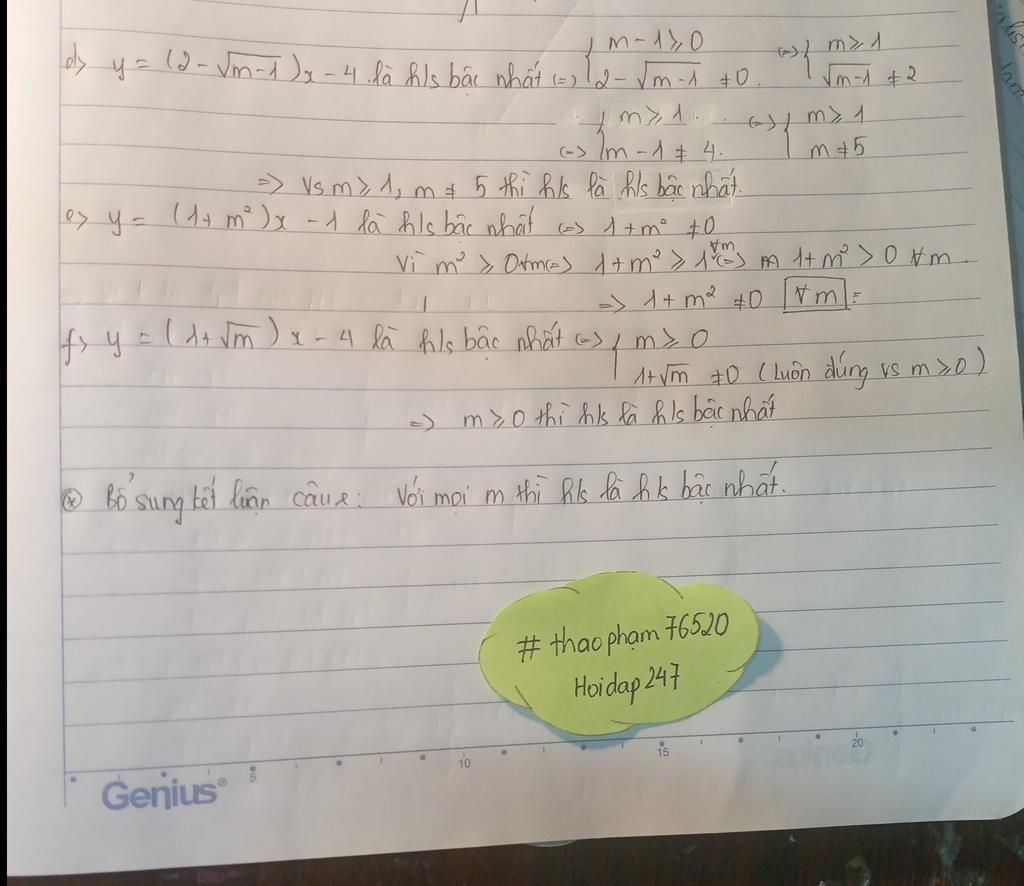 d> y = (2 - √m-1) x - 4 là h/s bậc nhất <=> { m - 1 ≥ 0 <=> { m ≥ 1
2 - √m-1 ≠ 0. √m-1 ≠ 2
<=> { m ≥ 1 <=> { m ≥ 1
m - 1 ≠ 4. m ≠ 5
=> vs m ≥ 1, m ≠ 5 thì h/s là h/s bậc nhất.
e> y = (1 + m²) x - 1 là h/s bậc nhất <=> 1 + m² ≠ 0
Vì m² ≥ 0 ∀m <=> 1 + m² ≥ 1 ∀m <=> 1 + m² > 0 ∀m.
=> 1 + m² ≠ 0 ∀m
f> y = (1 + √m) x - 4 là h/s bậc nhất <=> { m ≥ 0
1 + √m ≠ 0 (luôn đúng vs m ≥ 0)
=> m ≥ 0 thì h/s là h/s bậc nhất
* Bổ sung kết luận câu e: Với mọi m thì h/s là h/s bậc nhất.
# thaophạm76520
Hoidap247
5 10 15 20
Genius®